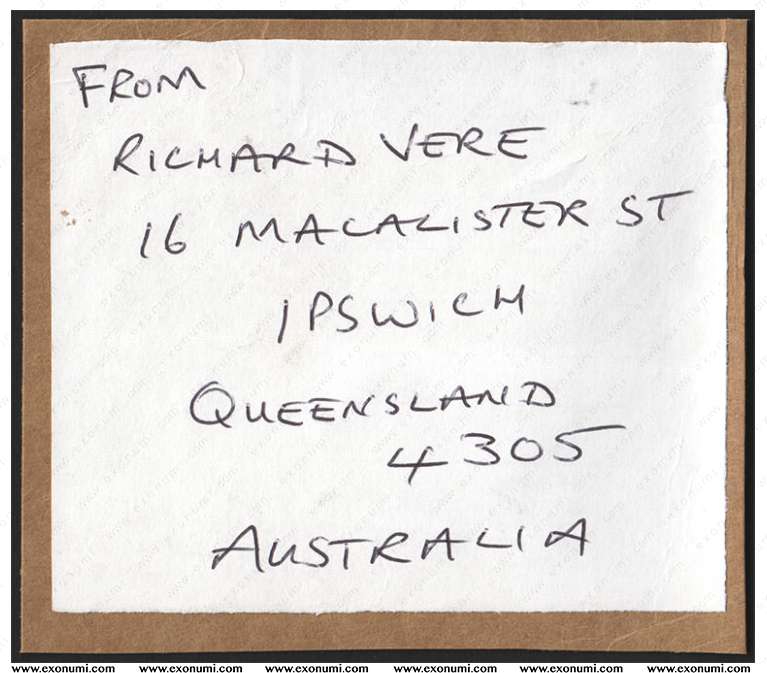 FROM
RICHARD VERE
16 MACALISTER ST
IPSWICH
QUEENSLAND
4305
AUSTRALIA
www.exonumi.com www.exonumi.com www.exonumi.com www.exonumi.com www.exonumi.com www.exonumi.com